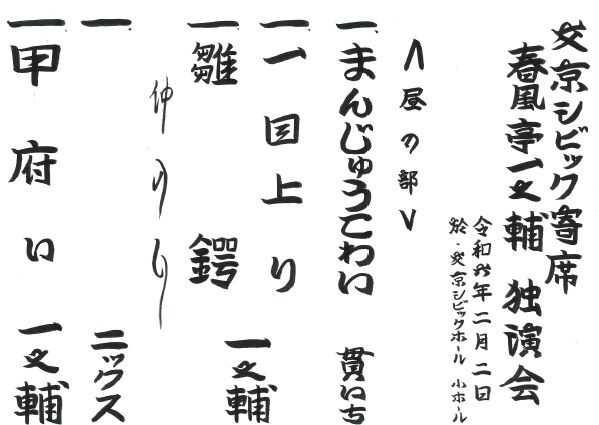 文京シビック寄席
春風亭一之輔 独演会
令和六年二月二日
於・文京シビックホール 小ホール
〈昼の部〉
一、まんじゅうこわい 貫いち
一、一目上り
一、雛鍔
一之輔
仲入り
一、 ニックス
一、甲府い 一之輔